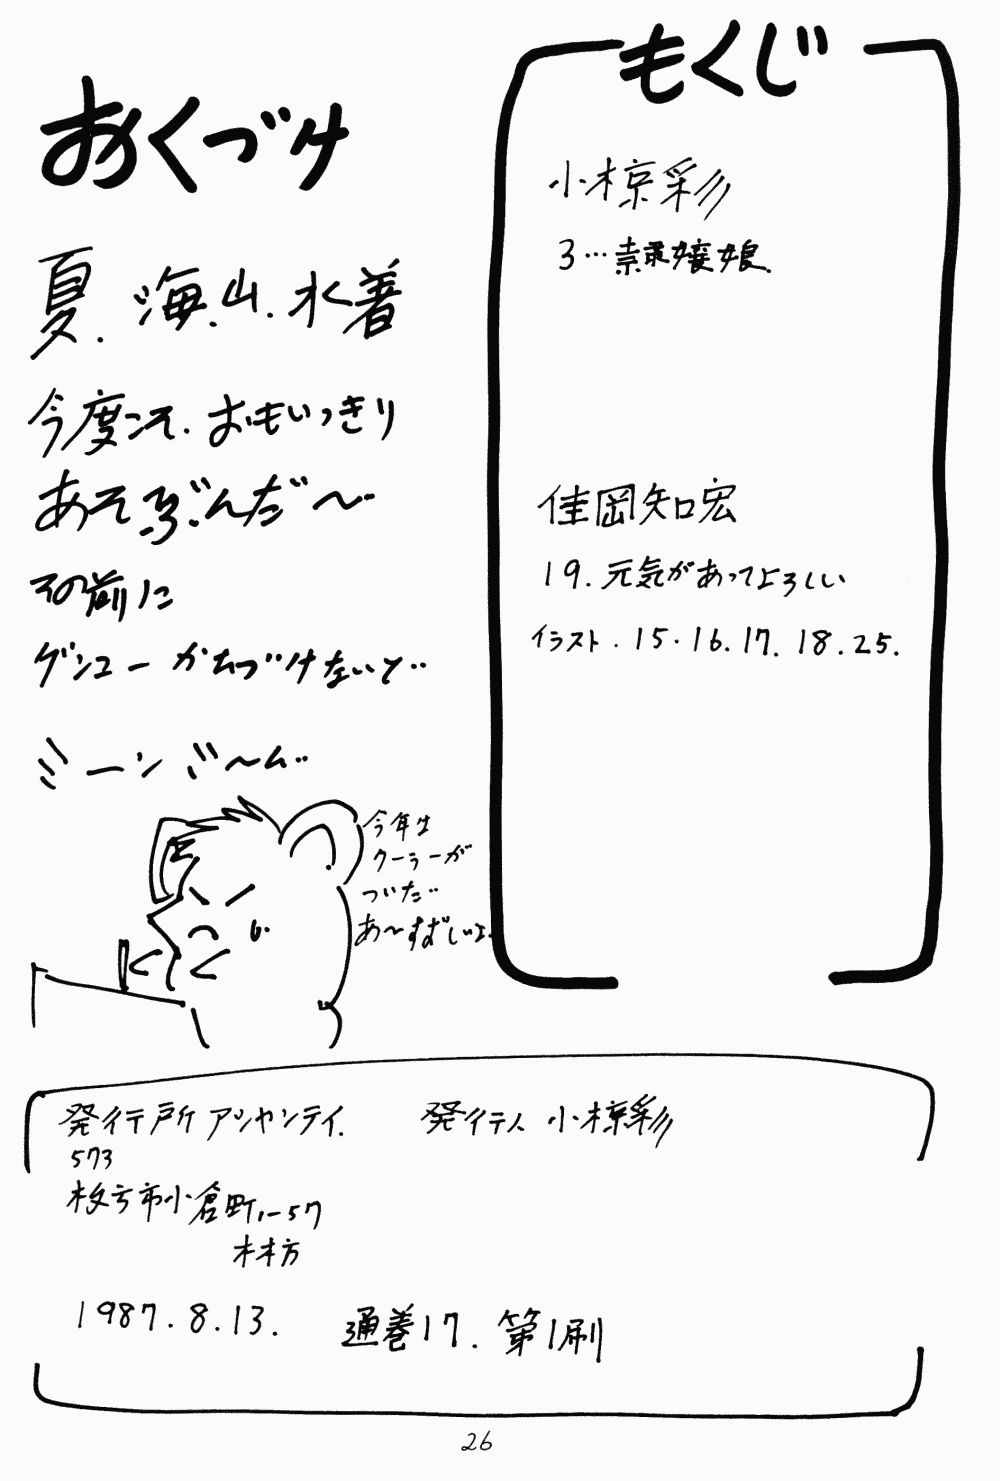 おくづけ
夏.海.山.水着
今度こそ.おもいっきり
あそぶんだ〜
その前に
ゲンコーかたづけないと‥
ミーンミ〜ム‥
今年は
クーラーが
ついた‥
あ〜すずしいよ.
もくじ
小椋彩
3…隷嬢娘.
佳岡知宏
19.元気があってよろしい
イラスト.15.16.17.18.25.
発行所 アシャンティ. 発行人 小椋彩
573
枚方市小倉町11-57
林方
1987.8.13. 通巻17.第1刷
26